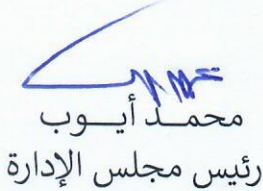 محمـد أيـوب
رئيس مجلس الإدارة